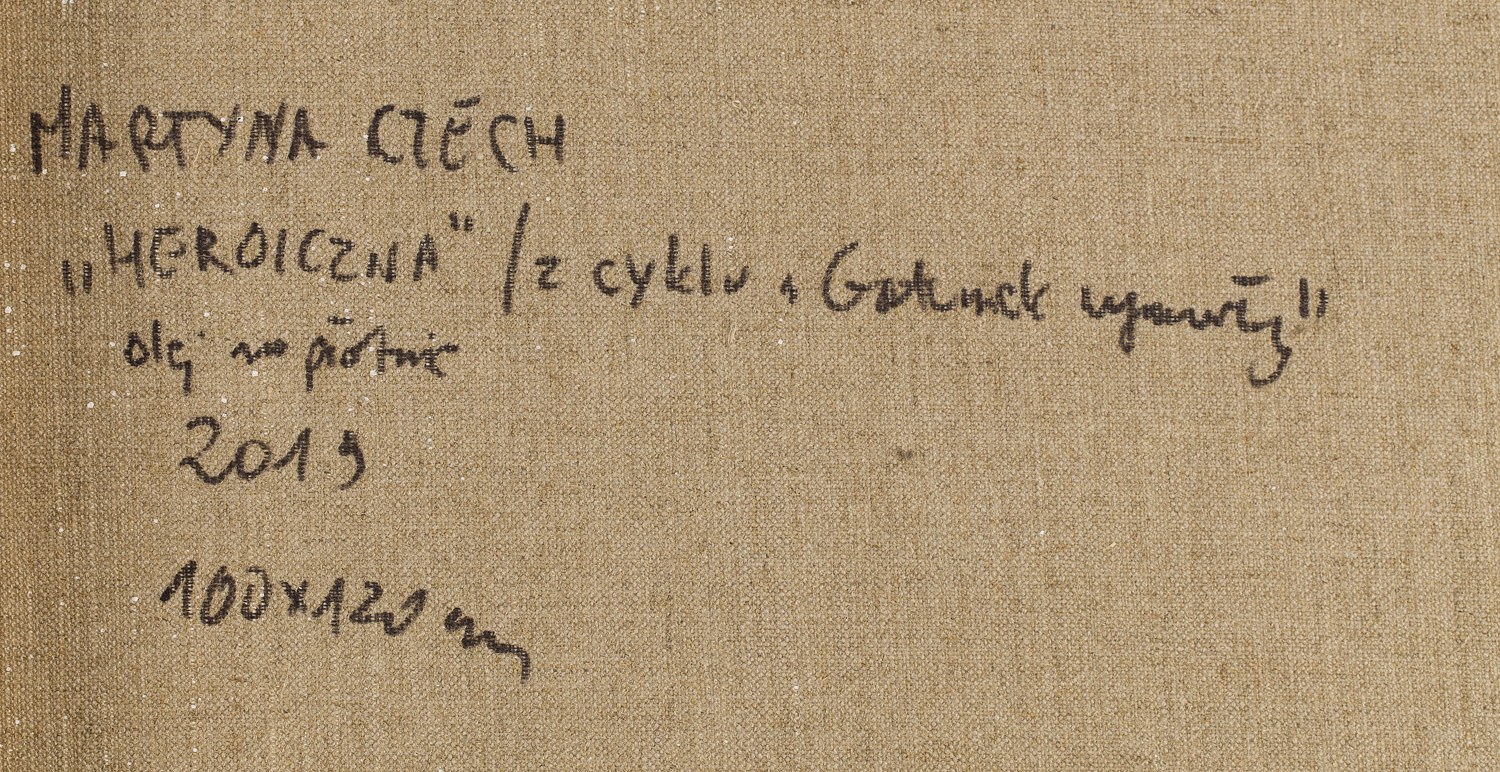 MARTYNA CZĘCH
„HEROICZNA" / z cyklu „Gatunek wymarły"
olej na płótnie
2019
100x120 cm